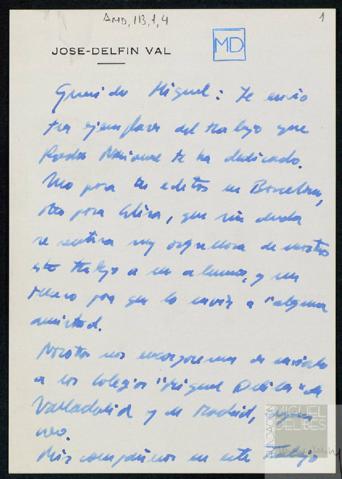 AMD, 113, 1, 4
1
JOSE-DELFIN VAL
MD
Querido Miguel: Te envío
tres ejemplares del trabajo que
Radio Nacional te ha dedicado.
Uno para tu editor en Barcelona,
otro para Elisa, que sin duda
se sentirá muy orgullosa de mostrar
este trabajo a un alumno, y un
tercero para que lo envíes a "alguna
amistad.
Nosotros nos encargaremos de enviarlo
a los colegios "Miguel Delibes" de
Valladolid y de Madrid,
Mis compañeros en este trabajo
MIGUEL
DELIBES